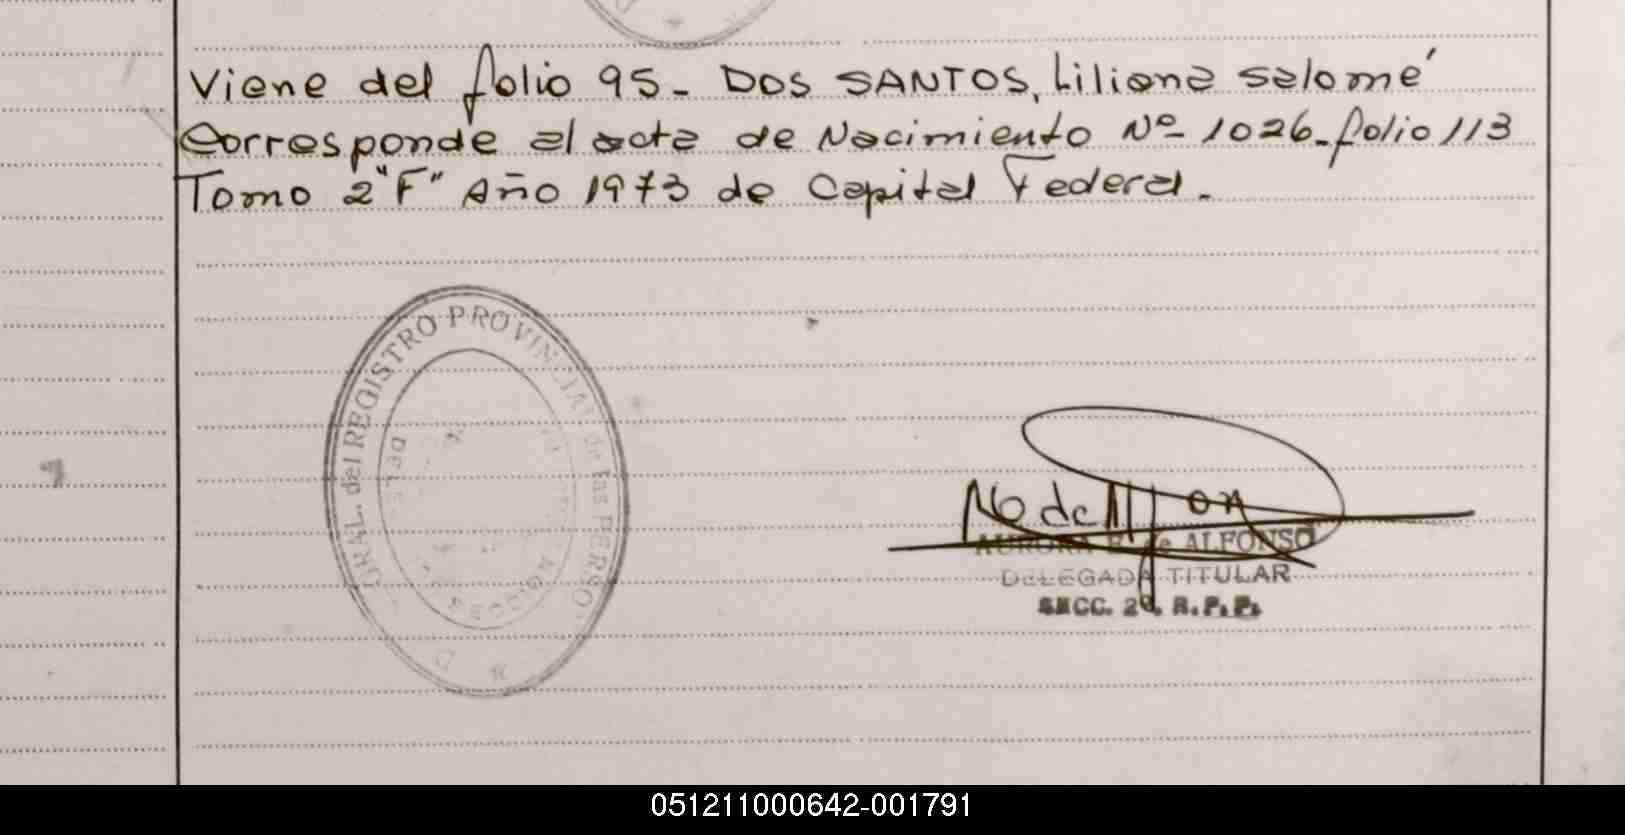 Viene del folio 95- DOS SANTOS, Liliana Salomé
Corresponde al acta de Nacimiento Nº- 1026-folio 113
Tomo 2"F" Año 1973 de Capital Federal.-
GRAL. del REGISTRO PROVINCIAL de las PERSO
AURORA de ALFONSO
DELEGADA TITULAR
SECC. 2ª. R.P.P.
051211000642-001791